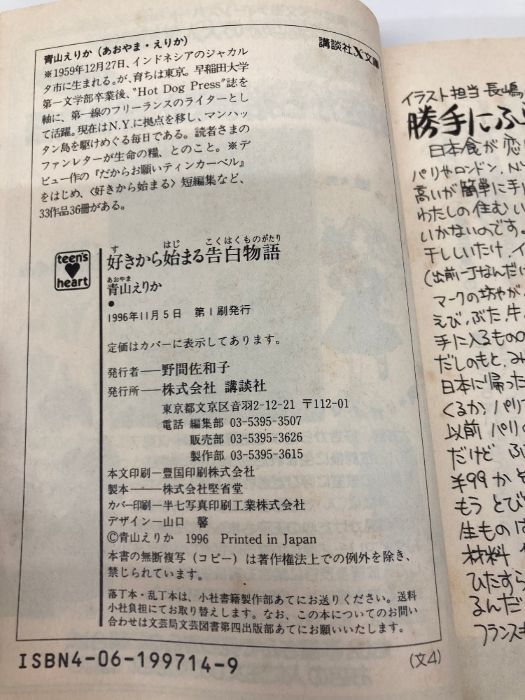 講談社X文庫
青山えりか(あおやま・えりか)
※1959年12月27日、インドネシアのジャカル
タ市に生まれる。が、育ちは東京。早稲田大学
第一文学部卒業後、"Hot Dog Press"誌を
軸に、第一線のフリーランスのライターとし
て活躍。現在はN.Y.に拠点を移し、マンハッ
タン島を駆けめぐる毎日である。読者さまの
ファンレターが生命の糧、とのこと。※デ
ビュー作の『だからお願いティンカーベル』
をはじめ、〈好きから始まる〉短編集など、
33作品36冊がある。
teen's
heart
す はじ こくはくものがたり
好きから始まる告白物語
あおやま
青山えりか
●
1996年11月5日 第1刷発行
定価はカバーに表示してあります。
発行者―野間佐和子
発行所―株式会社 講談社
東京都文京区音羽2-12-21 〒112-01
電話 編集部 03-5395-3507
販売部 03-5395-3626
製作部 03-5395-3615
本文印刷―豊国印刷株式会社
製本―株式会社堅省堂
カバー印刷―半七写真印刷工業株式会社
デザイン―山口 馨
©青山えりか 1996 Printed in Japan
本書の無断複写(コピー)は著作権法上での例外を除き、
禁じられています。
落丁本・乱丁本は、小社書籍製作部あてにお送りください。送料
小社負担にてお取り替えします。なお、この本についてのお問い
合わせは文芸局文芸図書第四出版部あてにお願いいたします。
ISBN4-06-199714-9
(文4)
イラスト担当 長嶋
勝手にふ
日本食が恋
パリやロンドン、N.
高いが簡単に手
わたしの住む い
いかないのです。
干ししいたけ、イ
(出前一丁なんだけ
マークの坊やが
えび、ぶた、牛、
手に入るものの
だしのもと、み
日本に帰った
くるか、パリ
以前 パリの
だけど ふ
¥99か
もう とび
生ものは
材料 や
ひたすら
るんだ
フランス